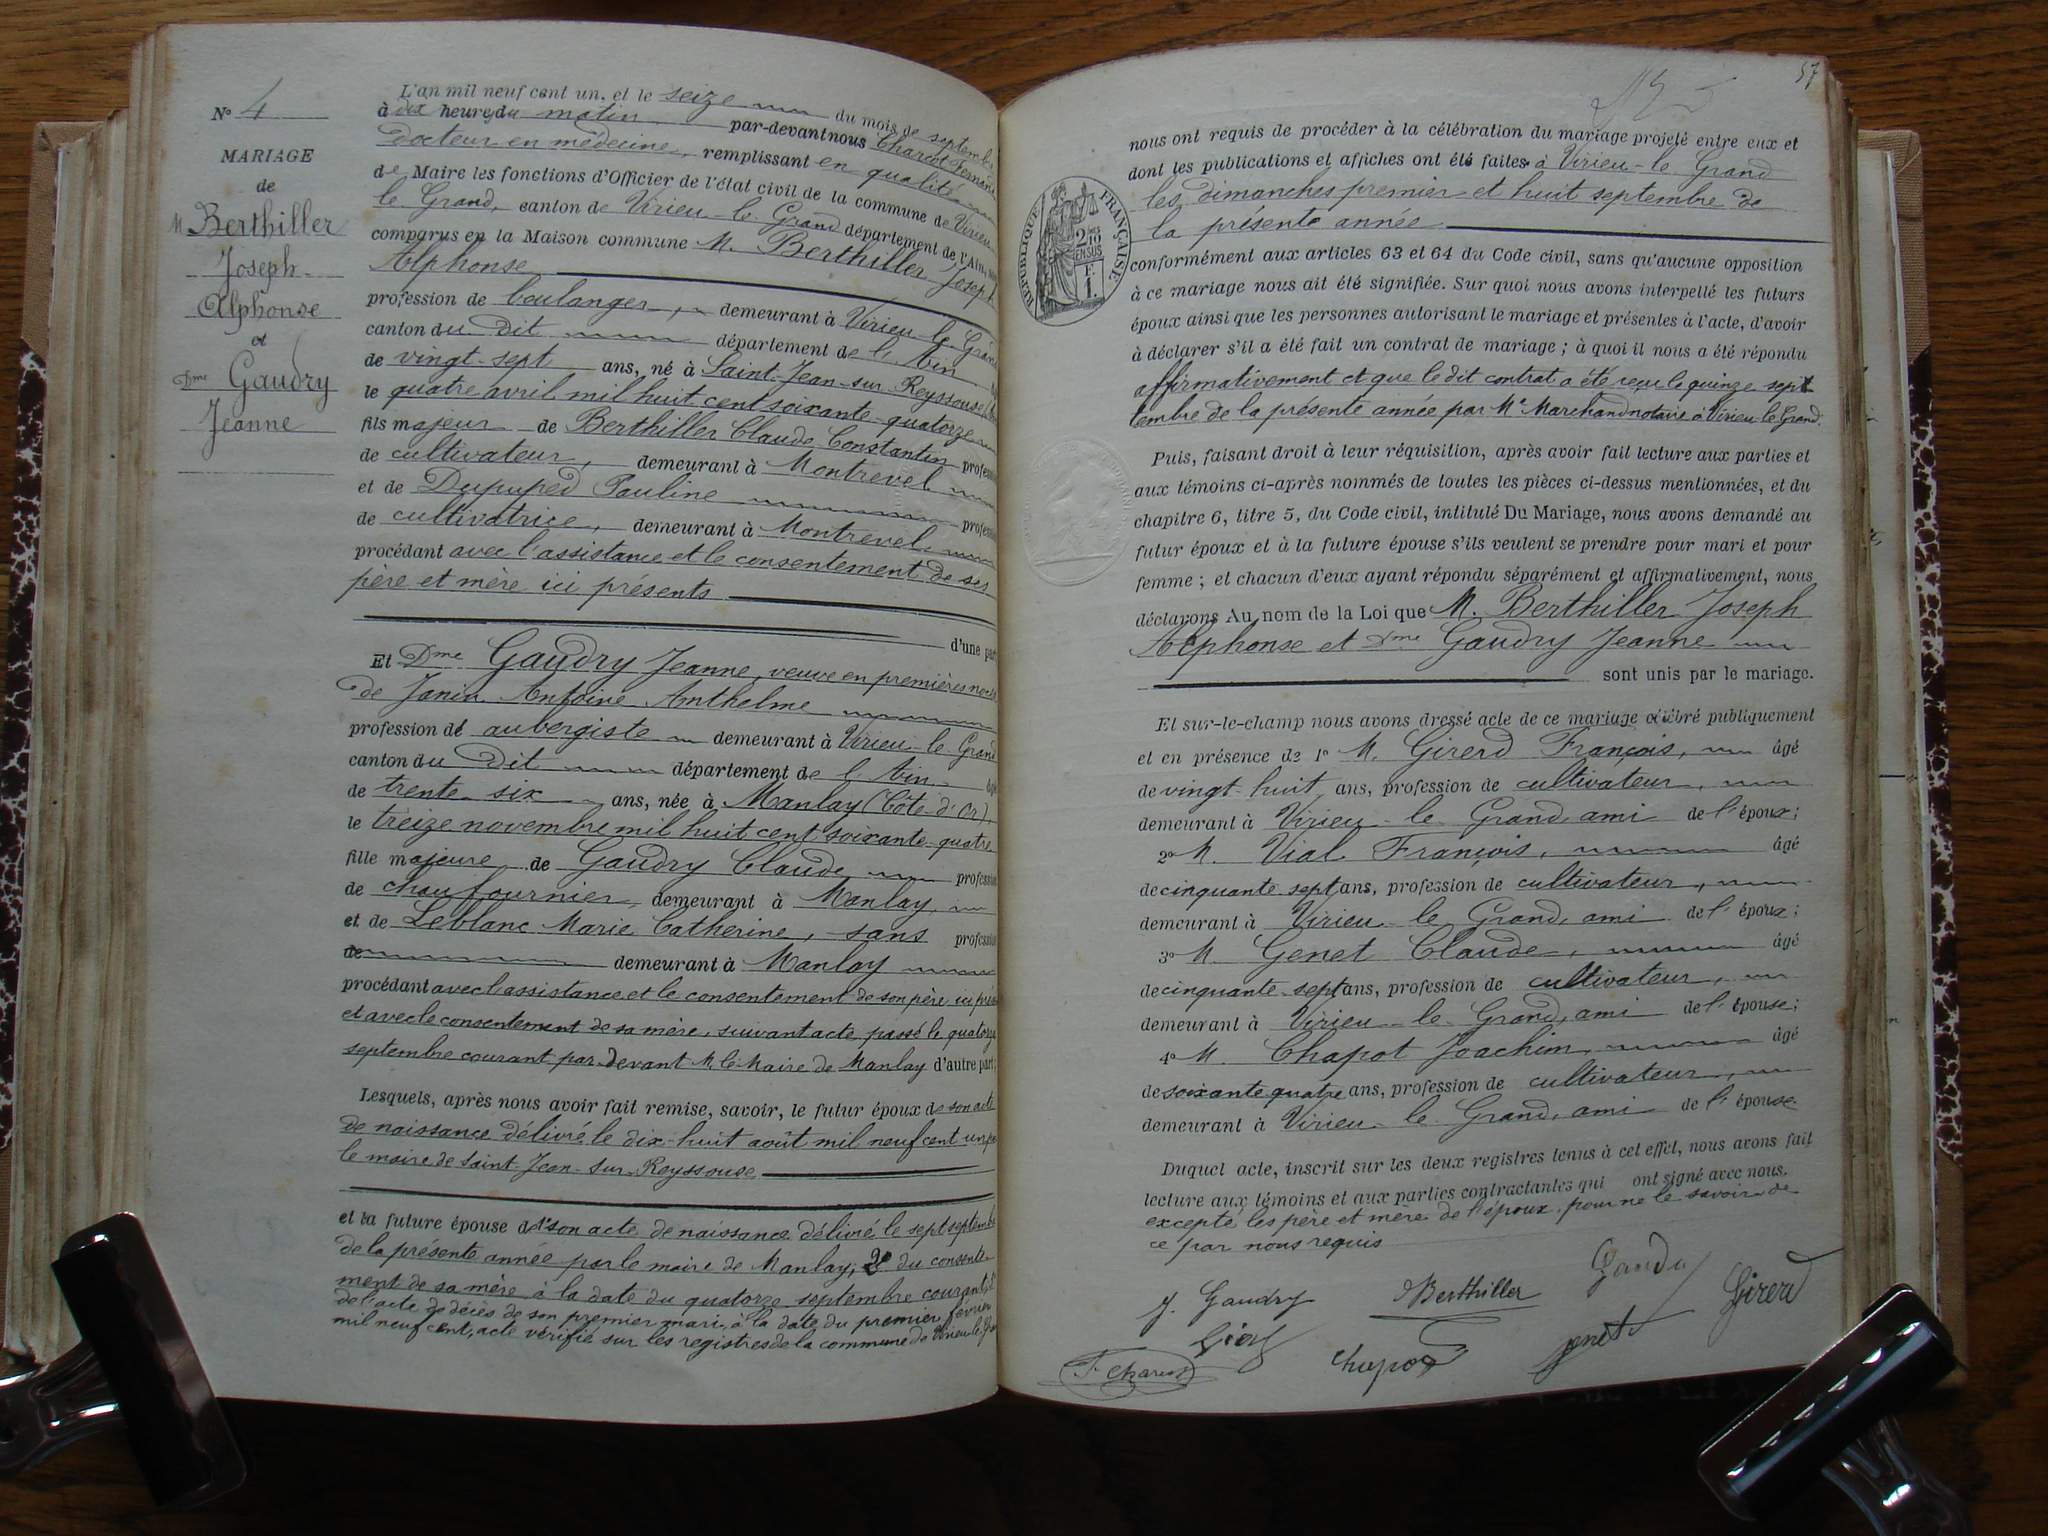 N° 4
MARIAGE
de
M Berthiller
Joseph
Alphonse
et
Dme Gaudry
Jeanne
L'an mil neuf cent un, et le seize du mois de septembre
à dix heures du matin par-devant nous Charcot Fernand
docteur en médecine, remplissant en qualité
de Maire les fonctions d'Officier de l'état civil de la commune de Virieu
le Grand, canton de Virieu-le-Grand département de l'Ain,
comparus en la Maison commune M. Berthiller Joseph
Alphonse
profession de boulanger, demeurant à Virieu-le-Grand
canton du dit département de l'Ain
de vingt-sept ans, né à Saint-Jean-sur-Reyssouse
le quatre avril mil huit cent soixante-quatorze
fils majeur de Berthiller Claude Constantin profession
de cultivateur, demeurant à Montrevel
et de Dupuped Pauline profession
de cultivatrice, demeurant à Montrevel
procédant avec l'assistance et le consentement de ses
père et mère ici présents
d'une part
Et Dme Gaudry Jeanne, veuve en premières noces
de Janin Antoine Anthelme
profession de aubergiste demeurant à Virieu-le-Grand
canton du dit département de l'Ain
de trente-six ans, née à Manlay (Côte-d'Or),
le treize novembre mil huit cent soixante-quatre
fille majeure de Gaudry Claude profession
de chaufournier, demeurant à Manlay,
et de Leblanc Marie Catherine, sans profession
de demeurant à Manlay
procédant avec l'assistance et le consentement de son père ici présent
et avec le consentement de sa mère, suivant acte passé le quatorze
septembre courant par devant M. le Maire de Manlay d'autre part;
Lesquels, après nous avoir fait remise, savoir, le futur époux de son acte
de naissance délivré le dix-huit août mil neuf cent un par
le maire de Saint-Jean-sur-Reyssouse
et la future épouse de 1° son acte de naissance délivré le sept septembre
de la présente année par le maire de Manlay; 2° du consente-
ment de sa mère à la date du quatorze septembre courant; 3°
de l'acte de décès de son premier mari, à la date du premier février
mil neuf cent, acte vérifié sur les registres de la commune de Virieu-le-Grand
57
nous ont requis de procéder à la célébration du mariage projeté entre eux et
dont les publications et affiches ont été faites à Virieu-le-Grand
les dimanches premier et huit septembre de
la présente année
RÉPUBLIQUE FRANÇAISE
2/10 EN SUS
1 F.
conformément aux articles 63 et 64 du Code civil, sans qu'aucune opposition
à ce mariage nous ait été signifiée. Sur quoi nous avons interpellé les futurs
époux ainsi que les personnes autorisant le mariage et présentes à l'acte, d'avoir
à déclarer s'il a été fait un contrat de mariage; à quoi il nous a été répondu
affirmativement et que le dit contrat a été reçu le quinze sept
tembre de la présente année par Me Marchand notaire à Virieu-le-Grand.
Puis, faisant droit à leur réquisition, après avoir fait lecture aux parties et
aux témoins ci-après nommés de toutes les pièces ci-dessus mentionnées, et du
chapitre 6, titre 5, du Code civil, intitulé Du Mariage, nous avons demandé au
futur époux et à la future épouse s'ils veulent se prendre pour mari et pour
femme; et chacun d'eux ayant répondu séparément et affirmativement, nous
déclarons Au nom de la Loi que M. Berthiller Joseph
Alphonse et Dme Gaudry Jeanne
sont unis par le mariage.
Et sur-le-champ nous avons dressé acte de ce mariage célébré publiquement
et en présence de 1° M. Girerd François, âgé
de vingt-huit ans, profession de cultivateur,
demeurant à Virieu-le-Grand, ami de l'époux;
2° M. Vial François, âgé
de cinquante-sept ans, profession de cultivateur,
demeurant à Virieu-le-Grand, ami de l'époux;
3° M. Genet Claude, âgé
de cinquante-sept ans, profession de cultivateur,
demeurant à Virieu-le-Grand, ami de l'épouse;
4° M. Chapot Joachim, âgé
de soixante quatre ans, profession de cultivateur,
demeurant à Virieu-le-Grand, ami de l'épouse
Duquel acte, inscrit sur les deux registres tenus à cet effet, nous avons fait
lecture aux témoins et aux parties contractantes qui ont signé avec nous.
excepté les père et mère de l'époux, pour ne le savoir de
ce par nous requis
J. Gaudry Berthiller Gaudry Girerd
Vial Chapot Genet
F. Charcot